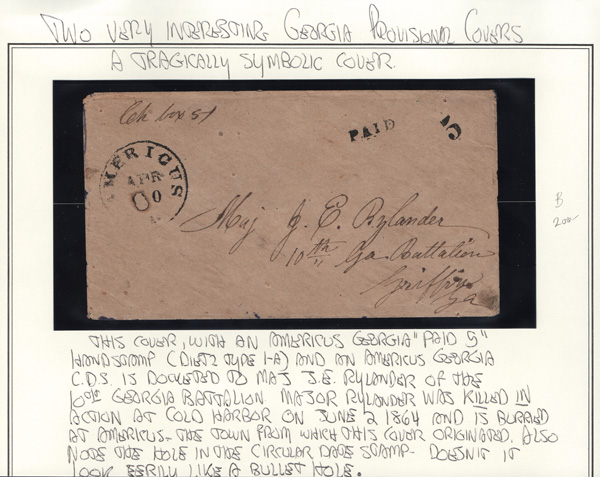 TWO VERY INTERESTING GEORGIA PROVISIONAL COVERS
A TRAGICALLY SYMBOLIC COVER.
Ch box 51
PAID 5
AMERICUS
APR
Maj J. E. Rylander
10th Ga. Battalion
Griffin
Ga
B
200-
THIS COVER, WITH AN AMERICUS GEORGIA "PAID 5"
HANDSTAMP (DIETZ TYPE I-A) AND AN AMERICUS GEORGIA
C.D.S. IS DOCKETED TO MAJ J.E. RYLANDER OF THE
10th GEORGIA BATTALION. MAJOR RYLANDER WAS KILLED IN
ACTION AT COLD HARBOR ON JUNE 2 1864 AND IS BURIED
AT AMERICUS- THE TOWN FROM WHICH THIS COVER ORIGINATED. ALSO
NOTE THE HOLE IN THE CIRCULAR DATE STAMP- DOESN'T IT
LOOK EERILY LIKE A BULLET HOLE.